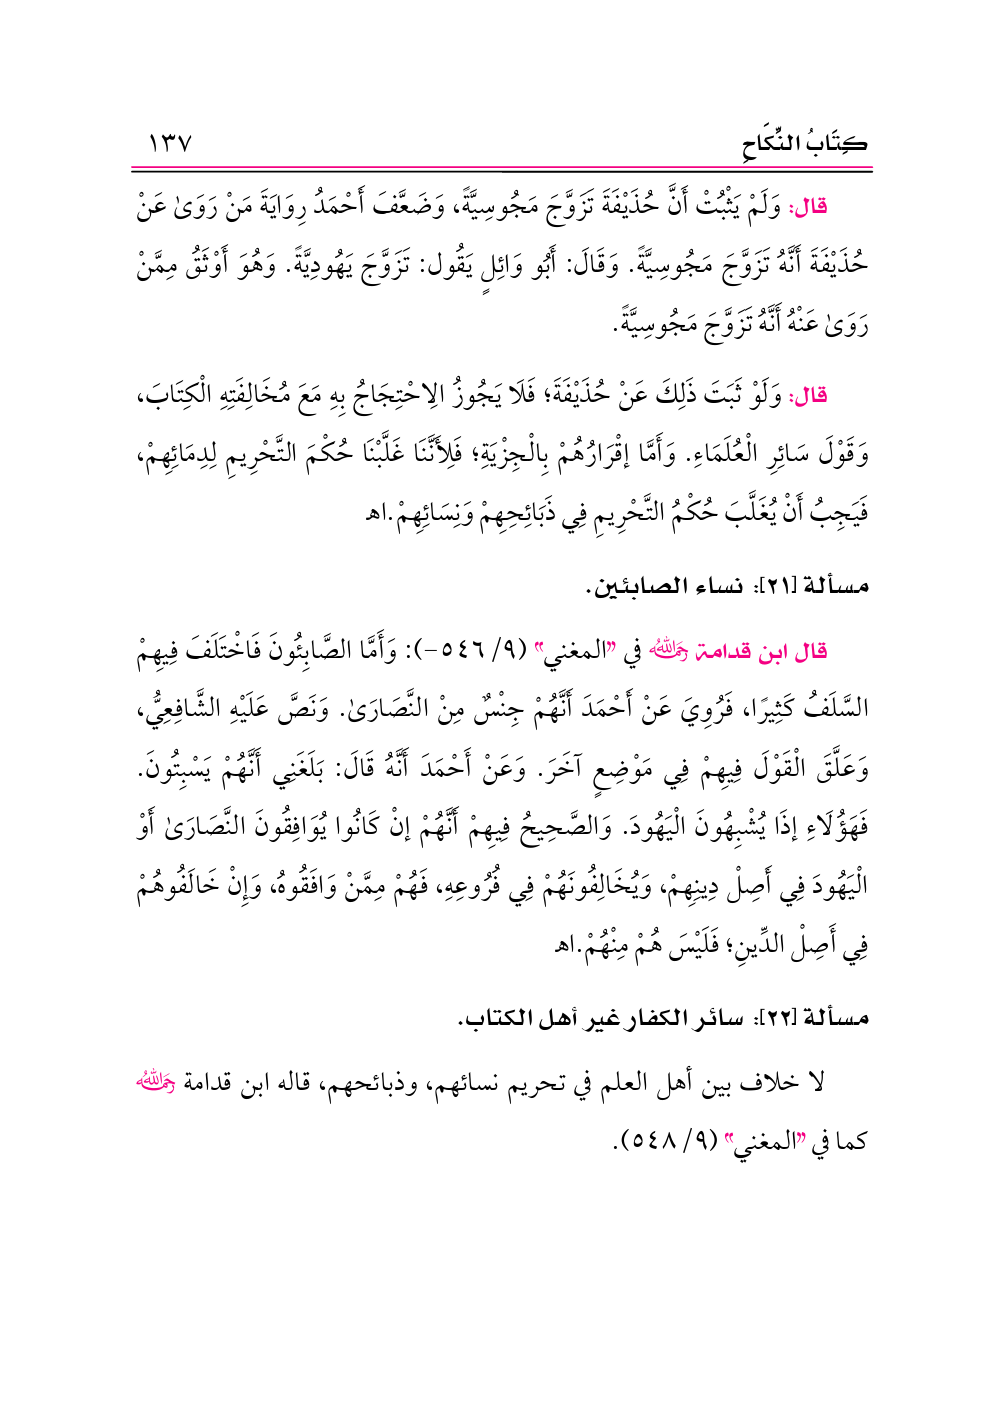 كِتَابُ النِّكَاحِ ١٣٧
قال: وَلَمْ يَثْبُتْ أَنَّ حُذَيْفَةَ تَزَوَّجَ مَجُوسِيَّةً، وَضَعَّفَ أَحْمَدُ رِوَايَةَ مَنْ رَوَىٰ عَنْ
حُذَيْفَةَ أَنَّهُ تَزَوَّجَ مَجُوسِيَّةً. وَقَالَ: أَبُو وَائِلٍ يَقُول: تَزَوَّجَ يَهُودِيَّةً. وَهُوَ أَوْثَقُ مِمَّنْ
رَوَىٰ عَنْهُ أَنَّهُ تَزَوَّجَ مَجُوسِيَّةً.
قال: وَلَوْ ثَبَتَ ذَلِكَ عَنْ حُذَيْفَةَ؛ فَلَا يَجُوزُ الِاحْتِجَاجُ بِهِ مَعَ مُخَالِفَتِهِ الْكِتَابَ،
وَقَوْلَ سَائِرِ الْعُلَمَاءِ. وَأَمَّا إقْرَارُهُمْ بِالْجِزْيَةِ؛ فَلِأَنَّنَا غَلَّبْنَا حُكْمَ التَّحْرِيمِ لِدِمَائِهِمْ،
فَيَجِبُ أَنْ يُغَلَّبَ حُكْمُ التَّحْرِيمِ فِي ذَبَائِحِهِمْ وَنِسَائِهِمْ.اهـ
مسألة [٢١]: نساء الصابئين.
قال ابن قدامة رَحِمَهُ اللَّهُ في "المغني" (٩/ ٥٤٦-): وَأَمَّا الصَّابِئُونَ فَاخْتَلَفَ فِيهِمْ
السَّلَفُ كَثِيرًا، فَرُوِيَ عَنْ أَحْمَدَ أَنَّهُمْ جِنْسٌ مِنْ النَّصَارَىٰ. وَنَصَّ عَلَيْهِ الشَّافِعِيُّ،
وَعَلَّقَ الْقَوْلَ فِيهِمْ فِي مَوْضِعٍ آخَرَ. وَعَنْ أَحْمَدَ أَنَّهُ قَالَ: بَلَغَنِي أَنَّهُمْ يَسْبِتُونَ.
فَهَؤُلَاءِ إذَا يُشْبِهُونَ الْيَهُودَ. وَالصَّحِيحُ فِيهِمْ أَنَّهُمْ إنْ كَانُوا يُوَافِقُونَ النَّصَارَىٰ أَوْ
الْيَهُودَ فِي أَصِلْ دِينِهِمْ، وَيُخَالِفُونَهُمْ فِي فُرُوعِهِ، فَهُمْ مِمَّنْ وَافَقُوهُ، وَإِنْ خَالَفُوهُمْ
فِي أَصِلْ الدِّينِ؛ فَلَيْسَ هُمْ مِنْهُمْ.اهـ
مسألة [٢٢]: سائر الكفار غير أهل الكتاب.
لا خلاف بين أهل العلم في تحريم نسائهم، وذبائحهم، قاله ابن قدامة رَحِمَهُ اللَّهُ
كما في "المغني" (٩/ ٥٤٨).